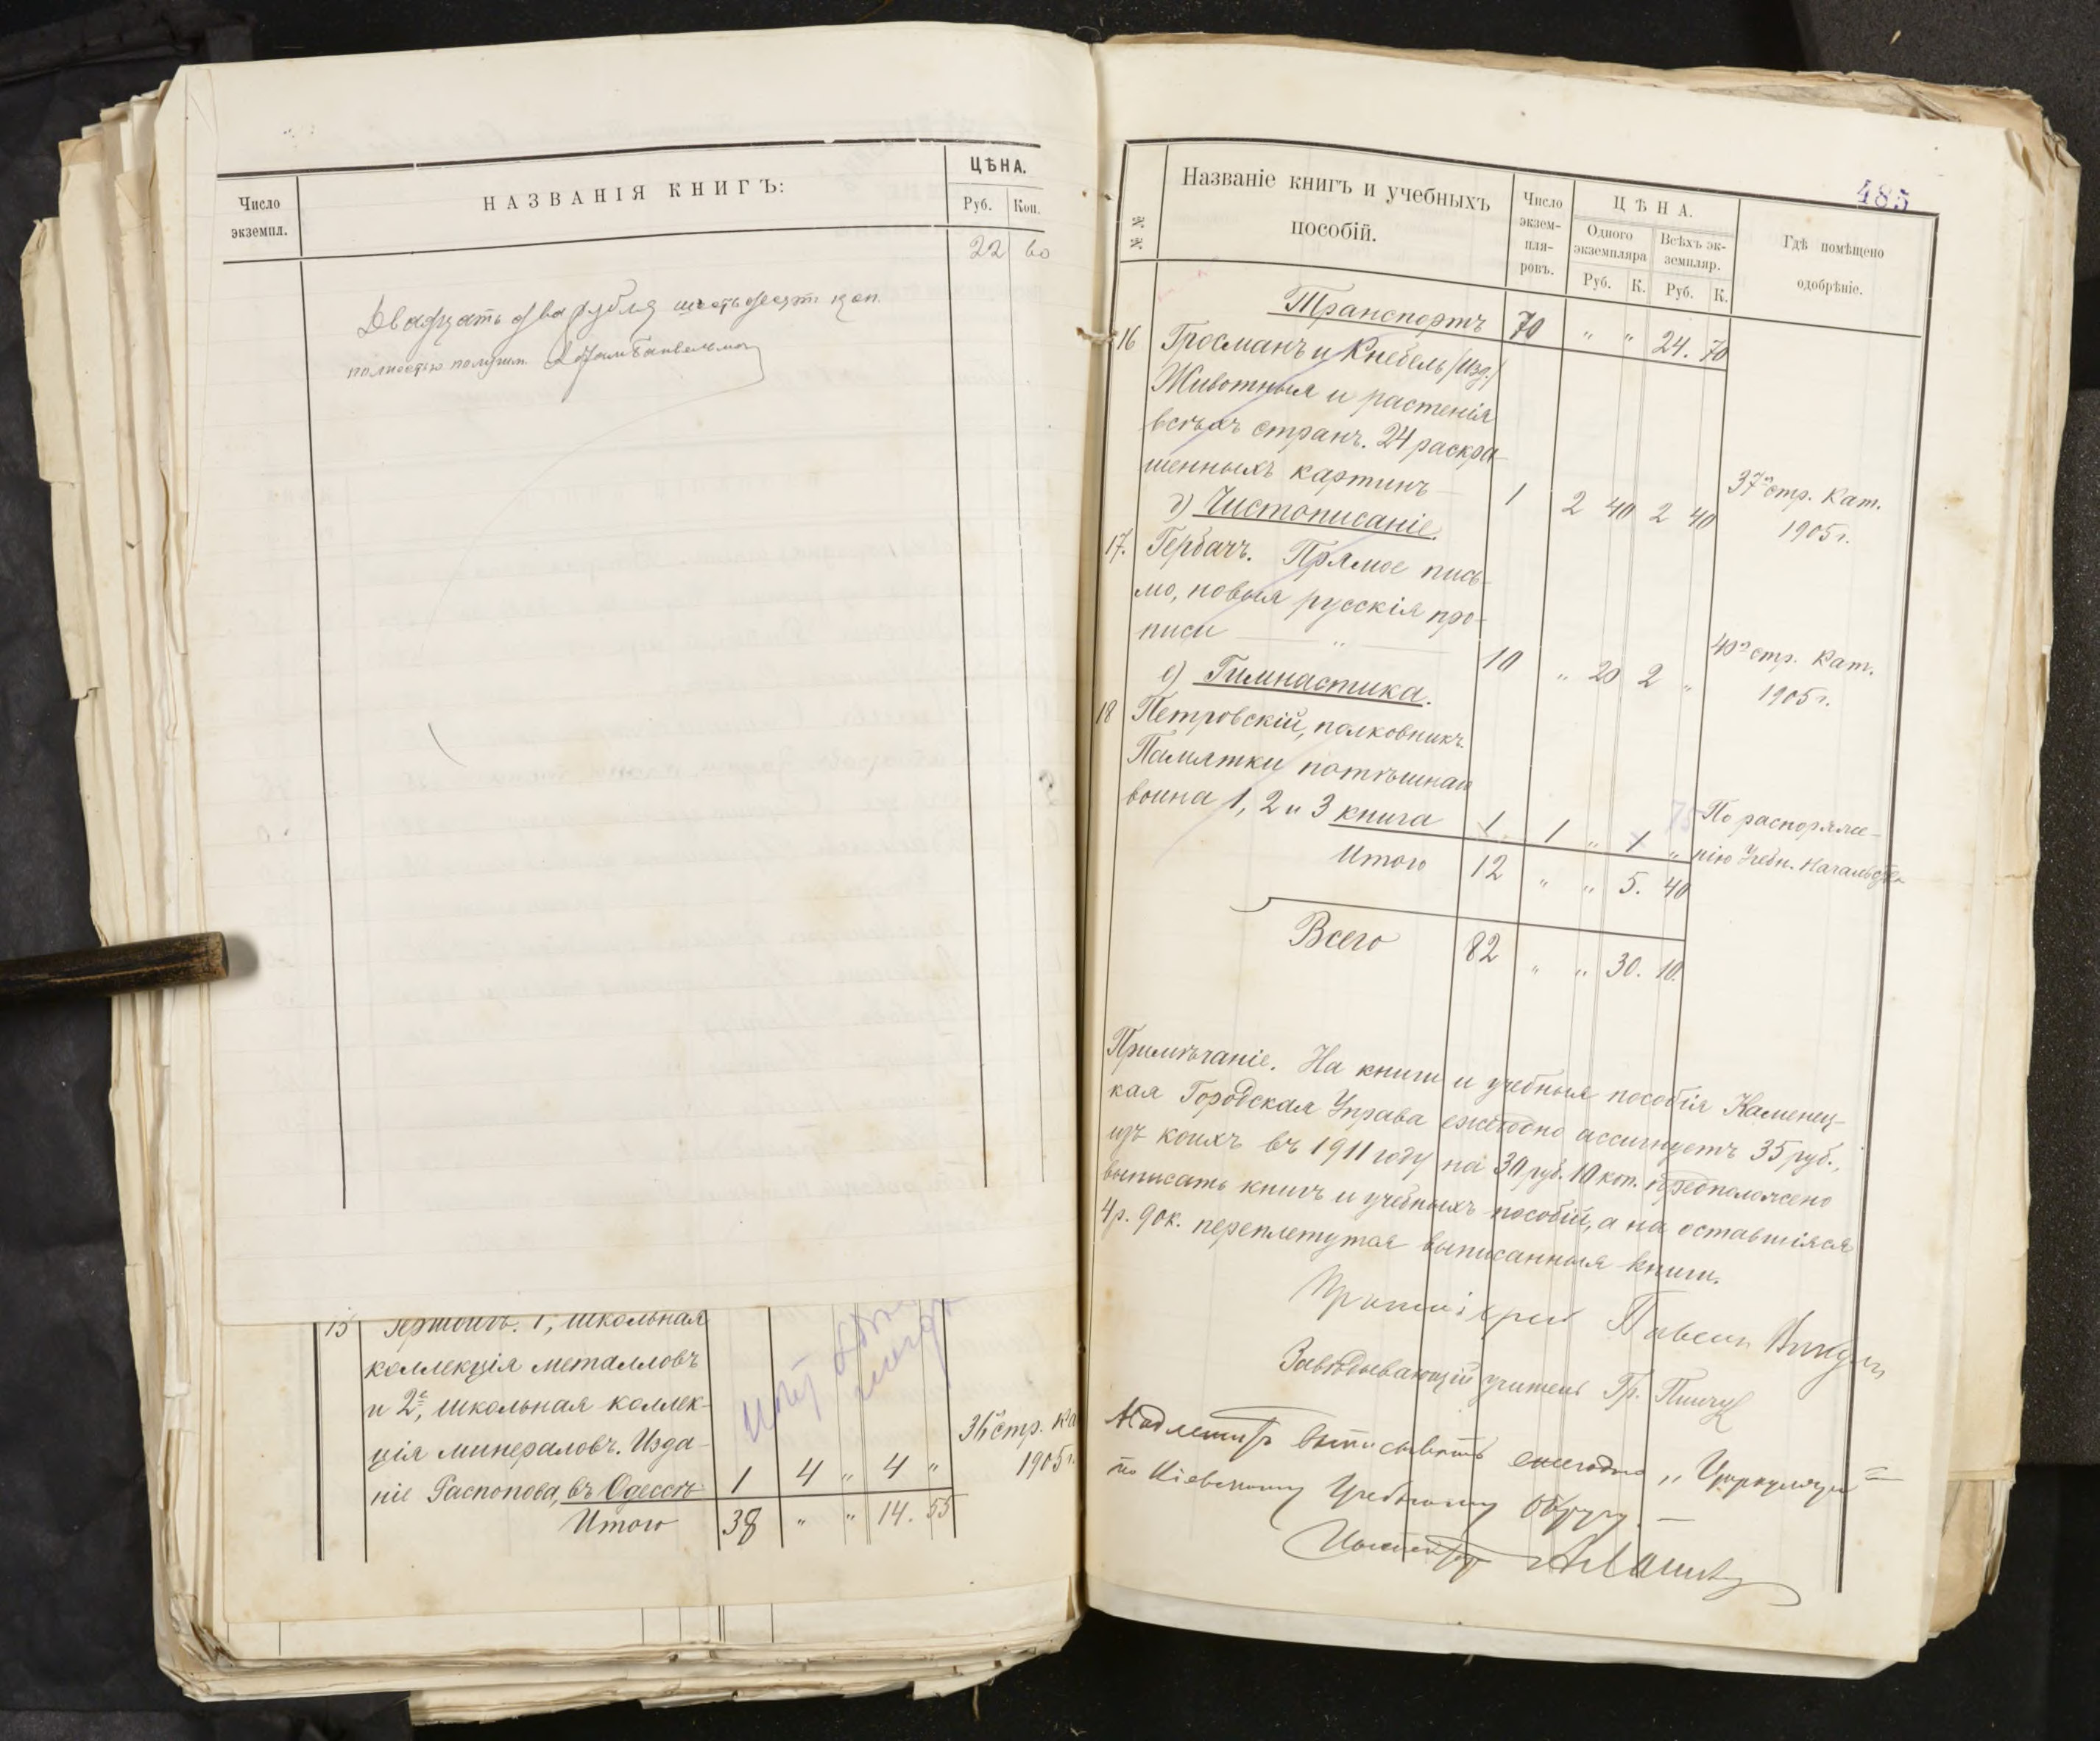 ЦѢНА.
Число
экземпл.
НАЗВАНІЯ КНИГЪ:
Руб. Коп.
22 60
Двадцать два рубля шестьдесят коп.
полностью получил
15
школьная
коллекція металловъ
и 2е, школьная коллек-
ція минераловъ. Изда-
ніе Распопова, въ Одессѣ 1 4 „ 4 „
36 стр. Ка
1905 г.
Итого 38 „ „ 14. 55
485
№ №
Названіе книгъ и учебныхъ
пособій.
Число
экзем-
пля-
ровъ.
ЦѢНА.
Одного
экземпляра
Всѣхъ эк-
земпляр.
Руб. К. Руб. К.
Гдѣ помѣщено
одобрѣніе.
Транспортъ 70 „ „ 24. 70
16 Гросманъ и Кнебель (изд.)
Животныя и растенія
всѣхъ странъ. 24 раскра-
шенныхъ картинъ 1 2 40 2 40
37 стр. Кат.
1905 г.
д) Чистописаніе.
17. Гербачъ. Прямое пись-
мо, новыя русскія про-
писи „ 10 „ 20 2 „
40 стр. Кат.
1905 г.
е) Гимнастика.
18 Петровскій, полковникъ.
Памятки потѣшнаго
воина 1, 2 и 3 книга 1 1 „ 1 „
75
По распоряже-
нію Учебн. Начальства
Итого 12 „ „ 5. 40
Всего 82 „ „ 30. 10.
Примѣчаніе. На книги и учебныя пособія Каменец-
кая Городская Управа ежегодно ассигнуетъ 35 руб.,
изъ коихъ въ 1911 году на 30 руб. 10 коп. предположено
выписать книгъ и учебныхъ пособій, а на оставшіяся
4 р. 90 к. переплетутся выписанныя книги.
Протоіерей Павелъ
Завѣдывающій учитель Гр.
Надлежитъ выписывать ежегодно „Циркуляры"
по Кіевскому Учебному Округу. —
Инспекторъ